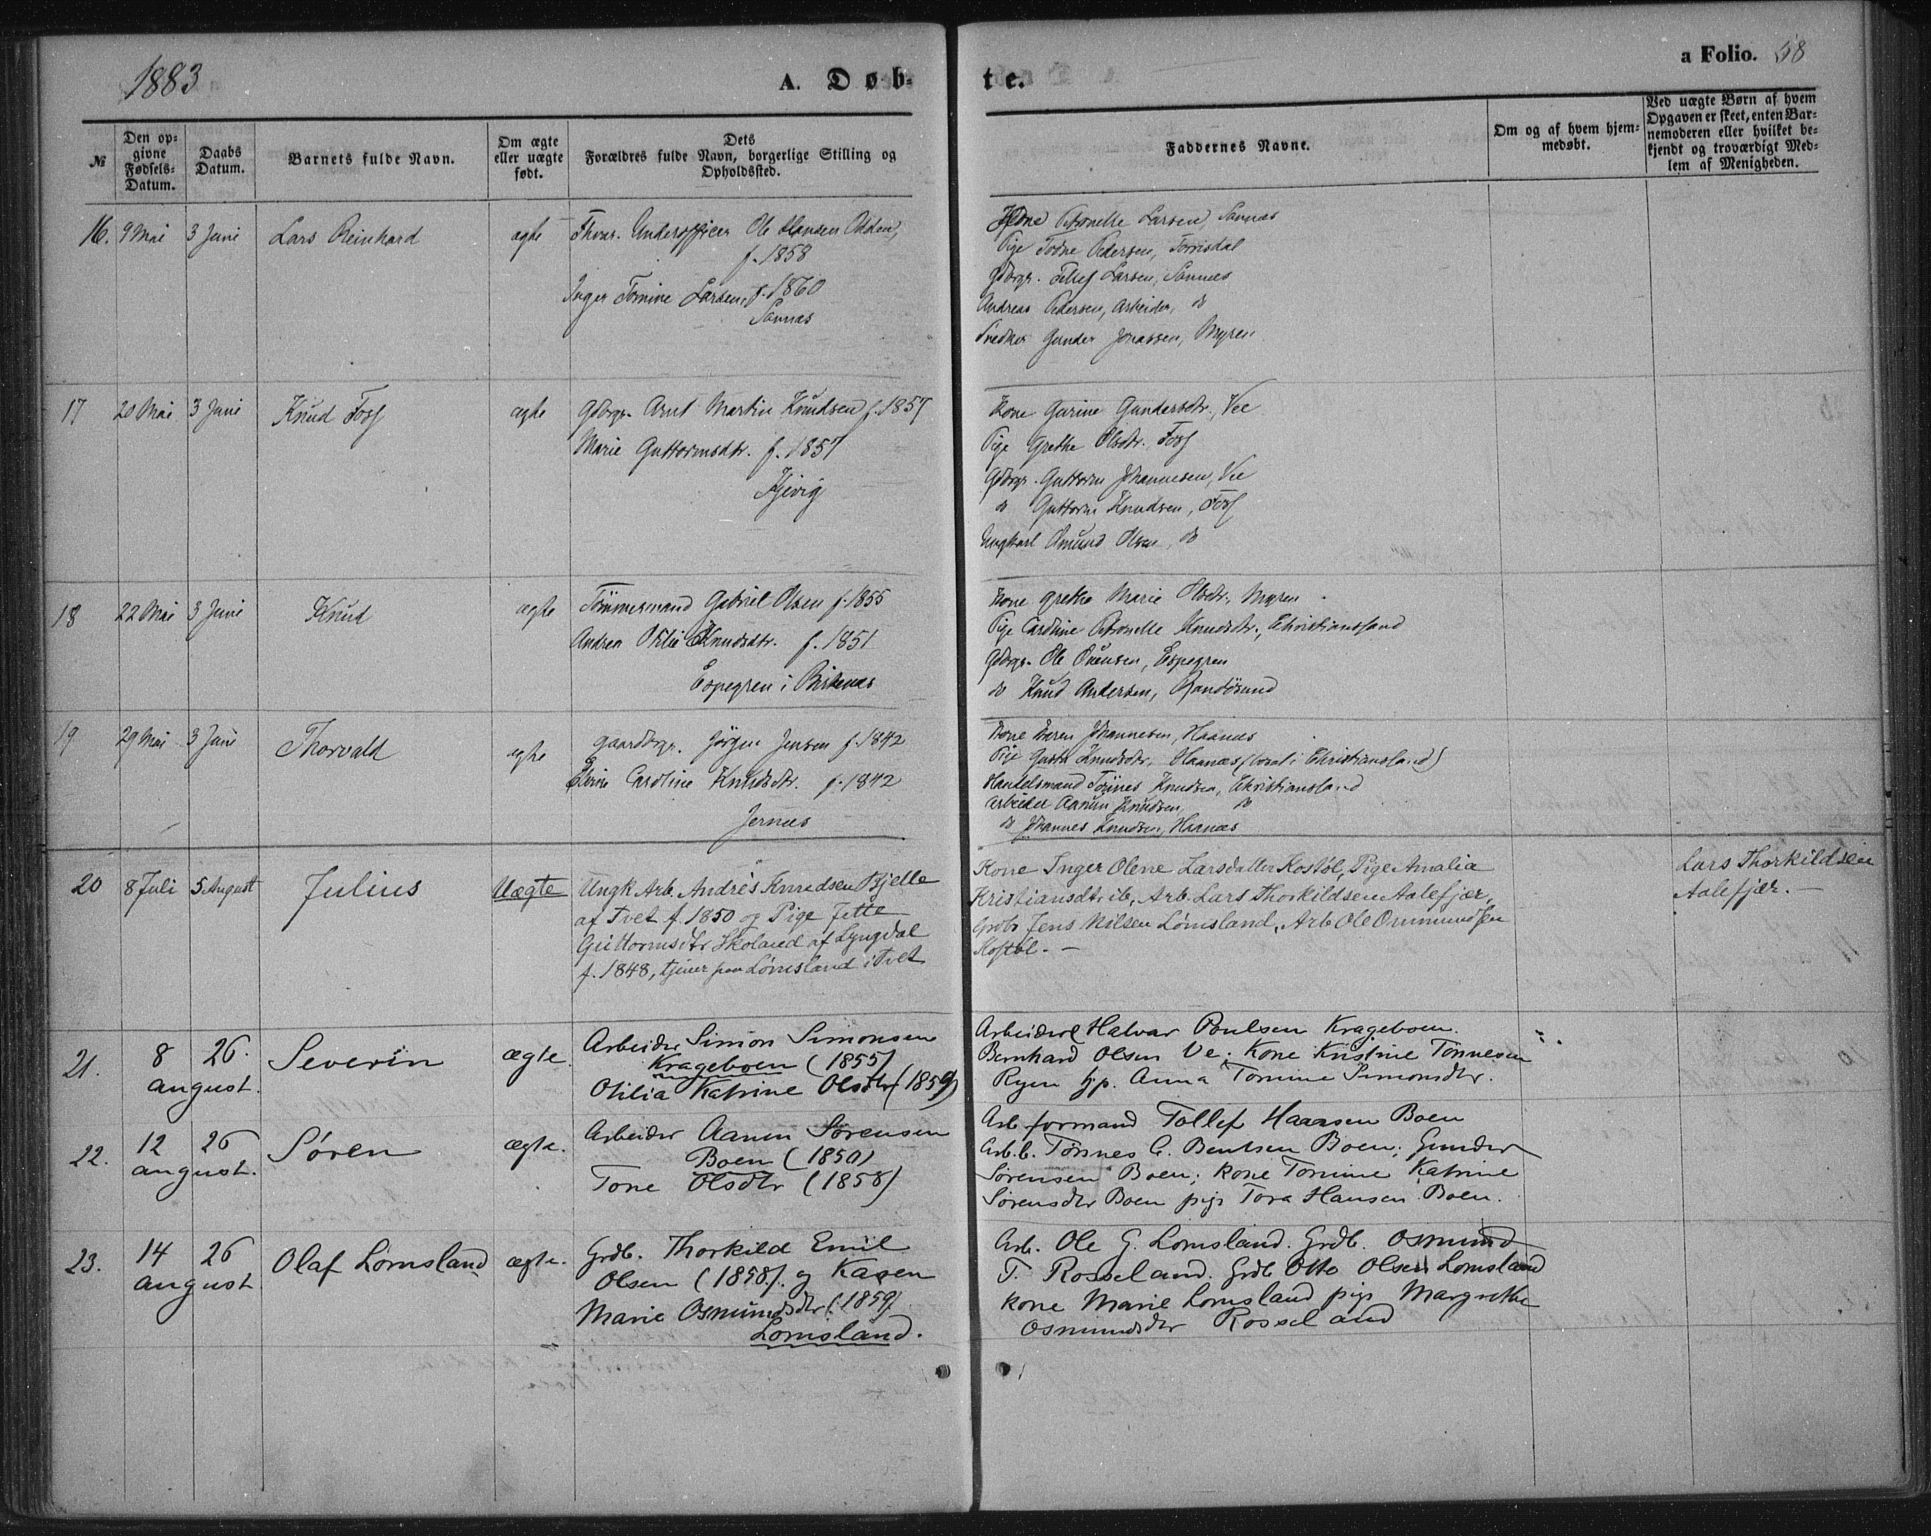 1883
A. Døb-
te.
a Folio. 58
№
Den op-
givne
Fødsels-
Datum.
Daabs
Datum.
Barnets fulde Navn.
Om ægte
eller uægte
født.
Dets
Forældres fulde Navn, borgerlige Stilling og
Opholdssted.
Faddernes Navne.
Om og af hvem hjem-
medøbt.
Ved uægte Børn af hvem
Opgaven er skeet, enten Bar-
nemoderen eller hvilket be-
kjendt og troværdigt Med-
lem af Menigheden.
16. 9 Mai 3 Juni Lars Reinhard ægte
Underofficer Ole Hansen Odden,
f. 1858
Inger Tomine Larsen, f. 1860
Sannæs
Kone Petronelle Larsen, Sannæs
Pige Todne Pedersen, Torrisdal
Gdbrgr. Tellef Larsen, Sannes
Andreas Pedersen, Arbeider, do
Snedker Gunder Jonassen, Myren
17 20 Mai 3 Juni Knud Foss ægte
Gdbrgr. Arnt Martin Knudsen f. 1857
Marie Guttormsdtr. f. 1857
Kjevig
Kone Gurine Gundersdtr., Vee
Pige Grethe Olsdtr. Foss
Gdbrgr. Guttorm Johannesen, Vee
do Guttorm Knudsen, Foss
Ungkarl Amund Olsen, do
18 22 Mai 3 Juni Knud ægte
Tømmermand Gabriel Olsen f. 1855
Andrea Otilie Knudsdtr. f. 1851
Espegren i Birkenæs
Kone Grethe Marie Olsdtr., Myren
Pige Caroline Petronelle Knudsdtr., Christianssand
Gdbrgr. Ole Evensen, Espegren
do Knud Andersen, Randøsund
19 29 Mai 3 Juni Thorvald ægte
Gaardbrgr. Jørgen Jensen f. 1842
Caroline Knudsdtr. f. 1842
Jernæs
Kone Johannesen, Haanæs
Pige Gusta Knudsdtr. Haanæs (boat i Christianssand)
Handelsmand Tønnes Knudsen, Christianssand
Arbeider Aanum Knudsen, do
do Johannes Knudsen, Haanæs
20 8 Juli 5 August Julius Uægte
Ungk. Arb. Andres Knudsen Bjelle
af Tvet f. 1850 og Pige Jette
Guttormsdtr Skoland af Lyngdal
f. 1848, tjener paa Lømsland i Tvet
Kone Inger Olene Larsdatter Kostøl, Pige Amalia
Kristiansdtr ib., Arb. Lars Thorkildsen Aalefjær,
Grdbr Jens Nilsen Lømsland, Arb. Ole Ommundsen
Kostøl. —
Lars Thorkildsen
Aalefjær. —
21. 8 26. Severin ægte.
august.
Arbeider Simon Simonsen
Krageboen (1855)
Otilia Katrine Olsdtr (1859)
Arbeider Halvar Poulsen Krageboen.
Bernhard Olsen Ve; Kone Kristine Tønnesen
Ryen pp. Anna Tomine Simonsdtr.
22. 12 26 Søren ægte.
august.
Arbeider Aanen Sørensen
Boen (1850)
Tone Olsdtr (1858)
Arb. formand Tollef Haansen Boen
Arb. b. Tønnes G. Bentsen Boen; Gunder
Sørensen Boen; kone Tomine Katrine
Sørensdtr Boen pige Tora Hansen Boen.
23. 14 26 Olaf Lømsland ægte.
august
Grdb. Thorkild Emil
Olsen (1858). og Karen
Marie Osmundsdtr (1859).
Lømsland.
Arb. Ole G. Lomsland. Grdb. Osmund
T. Rosseland. Grdb Otto Olsen Lomsland
kone Marie Lomsland pige Margrethe
Osmundsdtr Rosseland